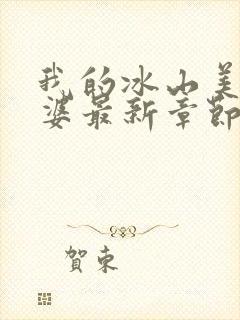 我的冰山美
婆最新章節
賀東